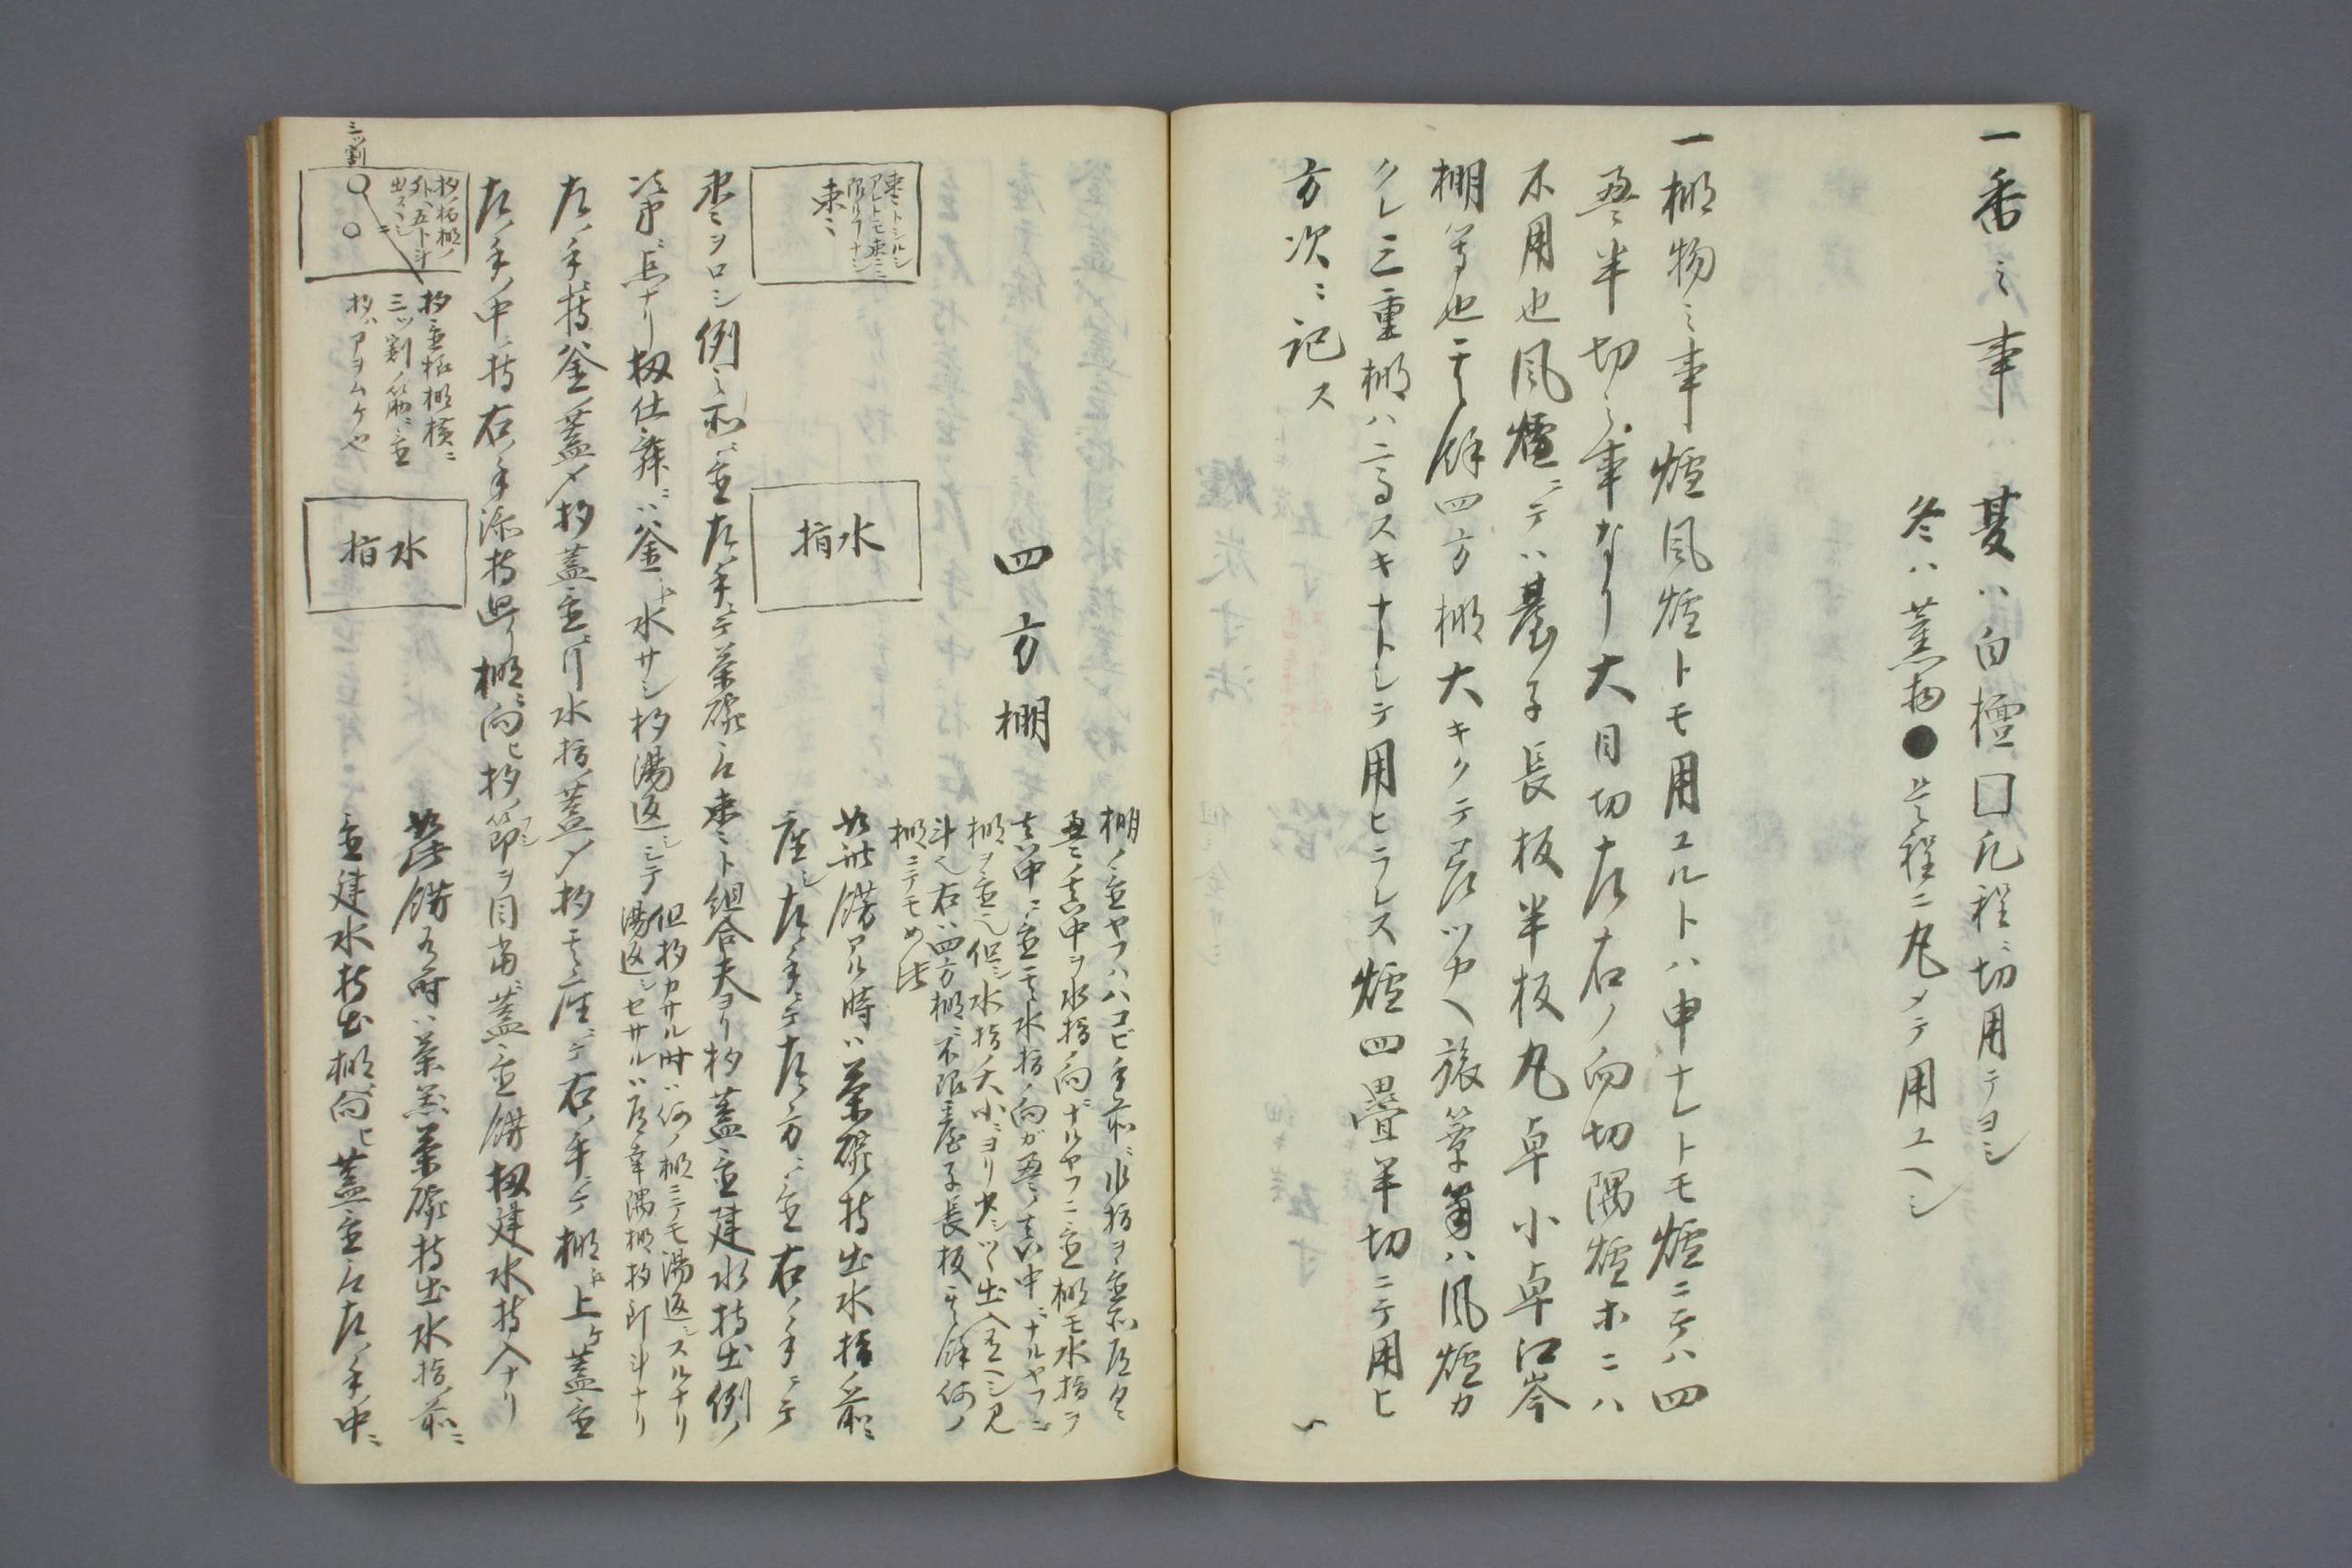 一香之事ハ夏ハ白檀□凡程ニ切用テヨシ
冬ハ薫物●是程ニ丸メテ用ユヘシ
一棚物之事爐風爐トモ用ユルトハ申ナレトモ爐ニテハ四
疊半切之事なり大目切左右ノ向切隅爐ホニハ
不用也風爐ニテハ臺子長板半板丸卓小卓江岑
棚等也其餘四方棚大キクテ居ツカヘ旅箪笥ハ風爐カ
クレ三重棚ハニスキナトシテ用ヒラレス爐四疊半切ニテ用ヒ
方次ニ記ス
四方棚
棚ノ置ヤフハハコビ手前ニ水指ヲ置所
疊ノ真中ヲ水指ノ向ニナルヤフニ置棚モ水指ヲ
真中ニ置其水指ノ向ガ疊ノ真中ニナルヤフニ
棚ヲ置也但シ水指ノ大小ニヨリ少シツヽ出入有ヘシ見
斗也右ハ四方棚ニ不限臺子長板其餘何ノ
棚ニテモ如此
棗ミトシルシ
アレトモ棗ニ
カキリタルナシ
棗ミ
水指
如此餝アル時ハ茶碗持出水指ノ前ニ
座シ左ノ手ニテ左ノ方ニ置右ノ手ニテ
棗ミヲロシ例之所ニ置左ノ手ニテ茶碗ト棗ミト組合夫ヨリ杓蓋置建水持出例ノ
次第ニ点ナリ扨仕舞ニハ釜ヱ水サシ杓湯返シシテ
但杓カサル時ハ何ノ棚ニテモ湯返シスルナリ
湯返シセサルハ及臺隅棚杓斗ナリ
左ノ手ニ持釜ノ蓋〆杓蓋置ニ引水指ノ蓋〆杓其座ニテ右ノ手ニテ棚ヱ上ケ蓋置
左ノ手ノ中ニ持右ノ手添持廻リ棚ニ向ヒ杓ノ節ヲ目当ニ蓋置餝扨建水持入ナリ
三ッ割
杓ノ柄棚ノ
外ヘ五ト斗
出スヘシ
杓置棚横ニ
三ッ割ノ筋ニ置
杓ハアヲムケ也
水指
如此餝有時ハ茶器茶碗持出水指ノ前ニ
置建水持出棚ニ向ヒ蓋置ヲ左ノ手ノ中ニ